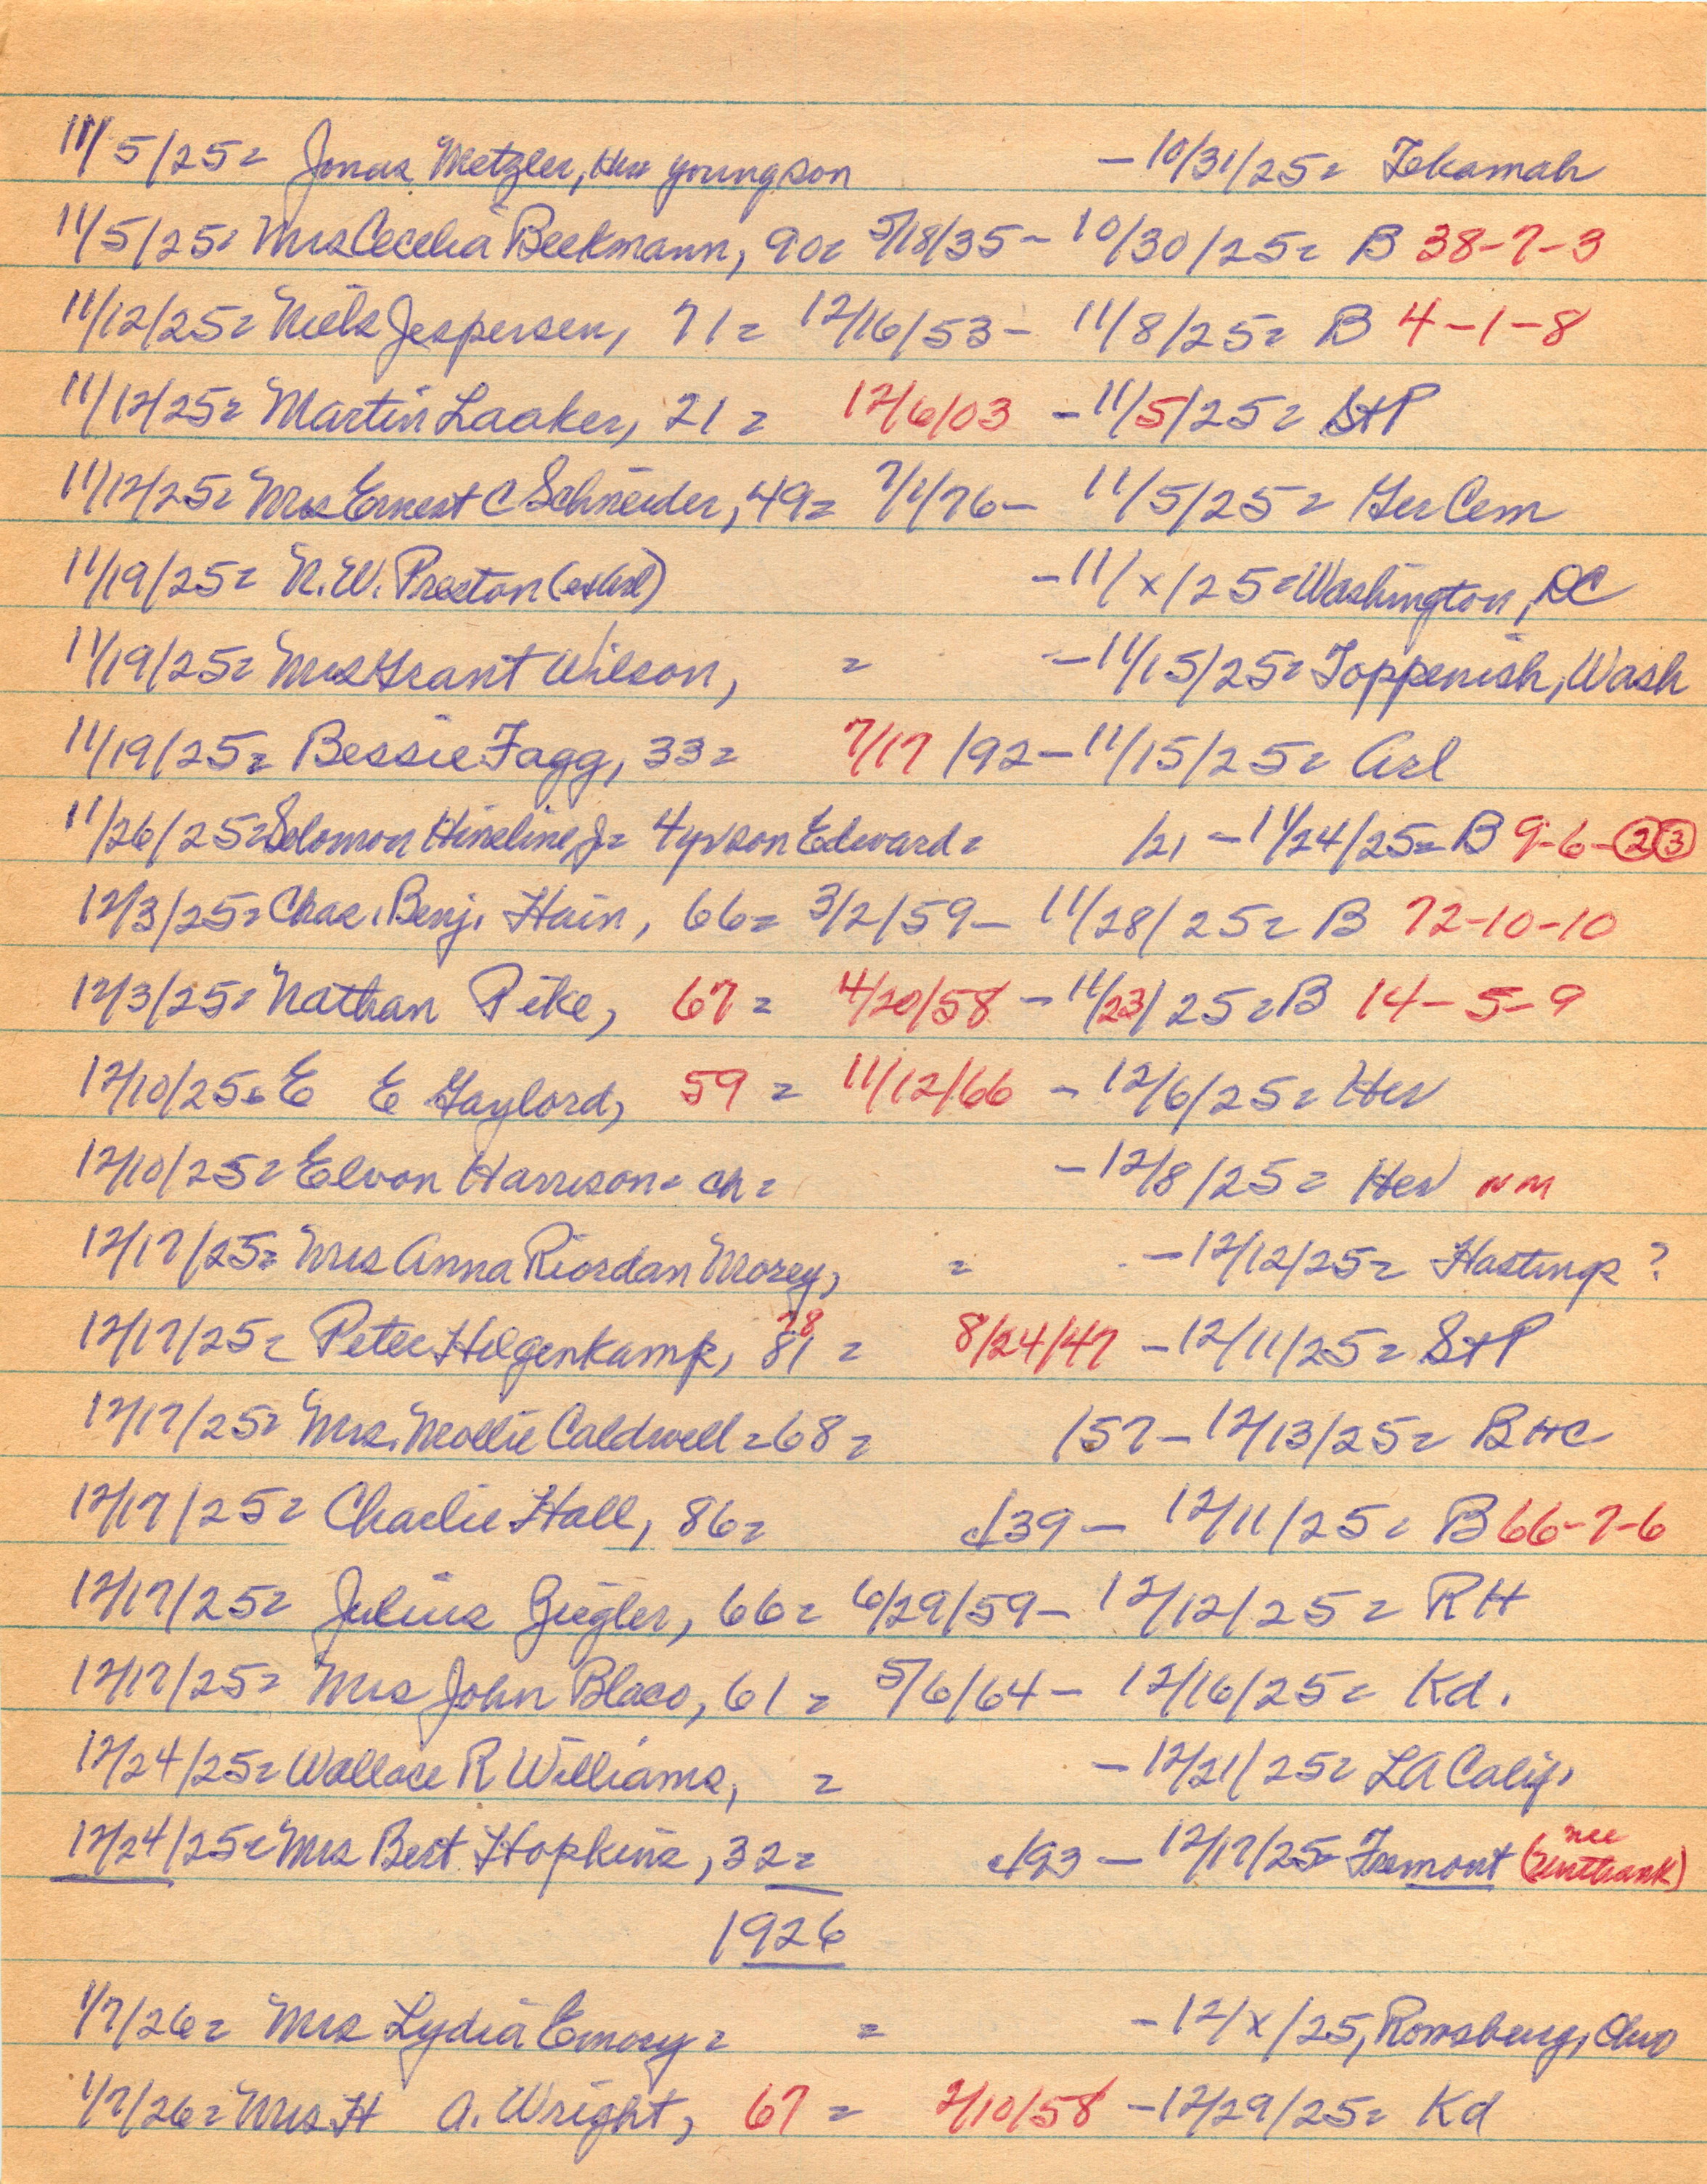 11/5/25= Jonas Metzler, Her young son -10/31/25= Tekamah
11/5/25= Mrs Cecelia Beekmann, 90= 5/18/35- 10/30/25= B 38-7-3
11/12/25= Niels Jespersen, 71= 12/16/53- 11/8/25= B 4-1-8
11/12/25= Martin Laaker, 21= 12/6/03 -11/5/25= StP
11/12/25= Mrs Ernest C Schneider, 49= 7/1/76- 11/5/25= Ger Cem
11/19/25= N.W. Preston (exArl) -11/x/25= Washington, DC
11/19/25= Mrs Grant Wilson, = -11/15/25= Toppenish, Wash
11/19/25= Bessie Fagg, 33= 7/17/92-11/15/25= Arl
11/26/25= Solomon Hineline, Jr= 4yr son Edward= /21 -11/24/25= B 9-6-2 3
12/3/25= Chas. Benj. Hain, 66= 3/2/59- 11/28/25= B 72-10-10
12/3/25= Nathan Pike, 67= 4/20/58 -11/23/25= B 14-5-9
12/10/25= E E Gaylord, 59= 11/12/66 -12/6/25= Her
12/10/25= Elvon Harrison= ch= -12/8/25= Her NM
12/17/25= Mrs Anna Riordan Morey, = -12/12/25= Hastings ?
12/17/25= Peter Hilgenkamp, 81 78 = 8/24/47 -12/11/25= StP
12/17/25= Mrs. Mollie Caldwell=68= /57-12/13/25= BHC
12/17/25= Charlie Hall, 86= c/39- 12/11/25= B 66-7-6
12/17/25= Julius Ziegler, 66= 6/29/59- 12/12/25= RH
12/17/25= Mrs John Blaco, 61= 5/6/64- 12/16/25= Kd.
12/24/25= Wallace R Williams, = -12/21/25= LA Calif.
12/24/25= Mrs Bert Hopkins, 32= c/93 -12/17/25= Fremont (nee
1926
1/7/26= Mrs Lydia Emory= = -12/x/25, Rowsburg, Ohio
1/7/26= Mrs H A. Wright, 67= 2/10/58 -12/29/25= Kd